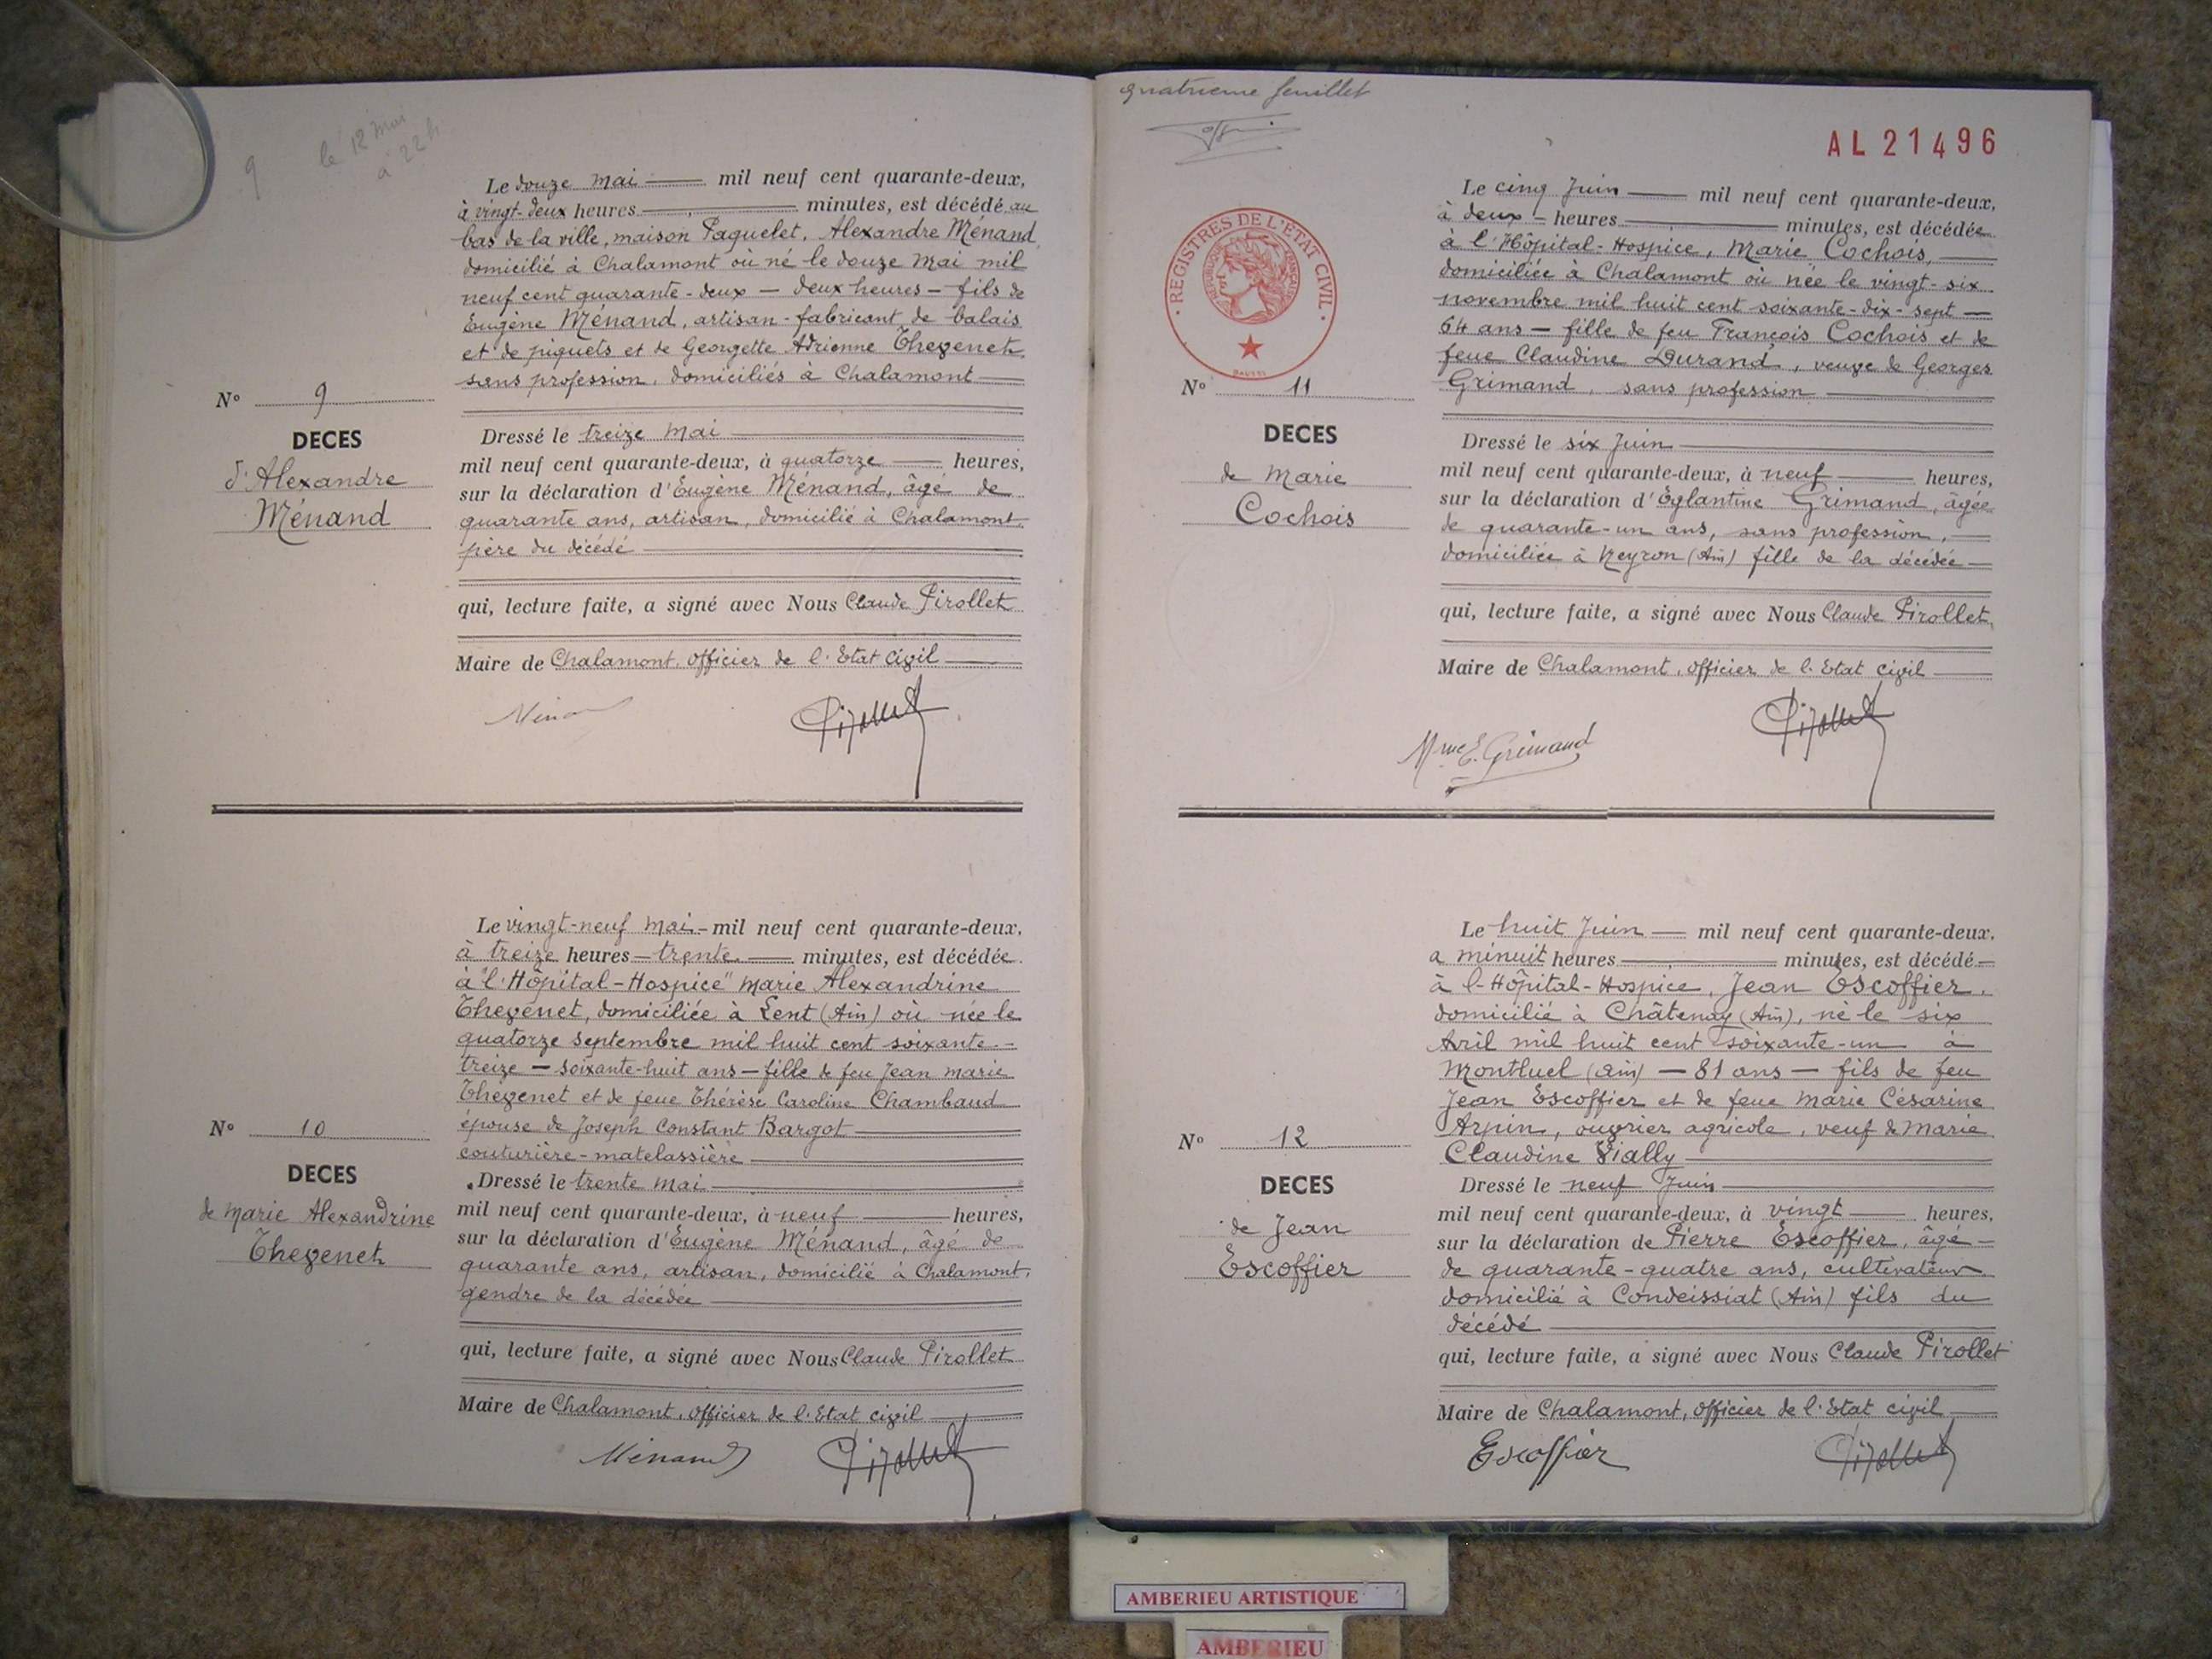 9
le 12 Mai
à 22 h
Le douze Mai mil neuf cent quarante-deux,
à vingt-deux heures minutes, est décédé au
bas de la ville, maison Paquelet, Alexandre Ménand,
domicilié à Chalamont où né le douze Mai mil
neuf cent quarante-deux — deux heures — fils de
Eugène Ménand, artisan-fabricant de balais
et de piquets et de Georgette Adrienne Thevenet
sans profession, domiciliés à Chalamont
N° 9
DECES
d'Alexandre
Ménand
Dressé le treize Mai
mil neuf cent quarante-deux, à quatorze heures,
sur la déclaration d'Eugène Ménand, âgé de
quarante ans, artisan, domicilié à Chalamont,
père du décédé
qui, lecture faite, a signé avec Nous Claude Pirollet
Maire de Chalamont, Officier de l'Etat Civil
Le vingt-neuf Mai - mil neuf cent quarante-deux,
à treize heures — trente minutes, est décédée
à "l'Hôpital-Hospice" Marie Alexandrine
Thevenet, domiciliée à Lent (Ain) où née le
quatorze Septembre mil huit cent soixante-
treize — soixante-huit ans — fille de feu Jean Marie
Thevenet et de feue Thérèse Caroline Chambaud
épouse de Joseph Constant Bargot
couturière-matelassière
N° 10
DECES
de Marie Alexandrine
Thevenet
Dressé le trente Mai
mil neuf cent quarante-deux, à neuf heures,
sur la déclaration d'Eugène Ménand, âgé de
quarante ans, artisan, domicilié à Chalamont,
gendre de la décédée
qui, lecture faite, a signé avec Nous Claude Pirollet
Maire de Chalamont, Officier de l'Etat civil
Ménand
quatrième feuillet
AL 21496
REGISTRES DE L'ETAT CIVIL
REPUBLIQUE FRANCAISE
Le cinq Juin mil neuf cent quarante-deux,
à deux heures minutes, est décédée
à l'Hôpital-Hospice, Marie Cochois,
domiciliée à Chalamont où née le vingt-six
novembre mil huit cent soixante-dix-sept —
64 ans — fille de feu François Cochois et de
feue Claudine Durand, veuve de Georges
Grimand, sans profession
N° 11
DECES
de Marie
Cochois
Dressé le six Juin
mil neuf cent quarante-deux, à neuf heures,
sur la déclaration d'Eglantine Grimand, âgée
de quarante-un ans, sans profession,
domiciliée à Neyron (Ain) fille de la décédée
qui, lecture faite, a signé avec Nous Claude Pirollet,
Maire de Chalamont, Officier de l'Etat civil
Mme E. Grimand
Le huit Juin mil neuf cent quarante-deux,
a minuit heures minutes, est décédé
à l'Hôpital-Hospice, Jean Escoffier,
domicilié à Châtenay (Ain), né le six
Avril mil huit cent soixante-un à
Montluel (Ain) — 81 ans — fils de feu
Jean Escoffier et de feue Marie Césarine
Arpin, ouvrier agricole, veuf de Marie
Claudine Vially
N° 12
DECES
de Jean
Escoffier
Dressé le neuf Juin
mil neuf cent quarante-deux, à vingt heures,
sur la déclaration de Pierre Escoffier, âgé
de quarante-quatre ans, cultivateur
domicilié à Condeissiat (Ain) fils du
décédé
qui, lecture faite, a signé avec Nous Claude Pirollet
Maire de Chalamont, Officier de l'Etat civil
Escoffier
AMBERIEU ARTISTIQUE
AMBERIEU